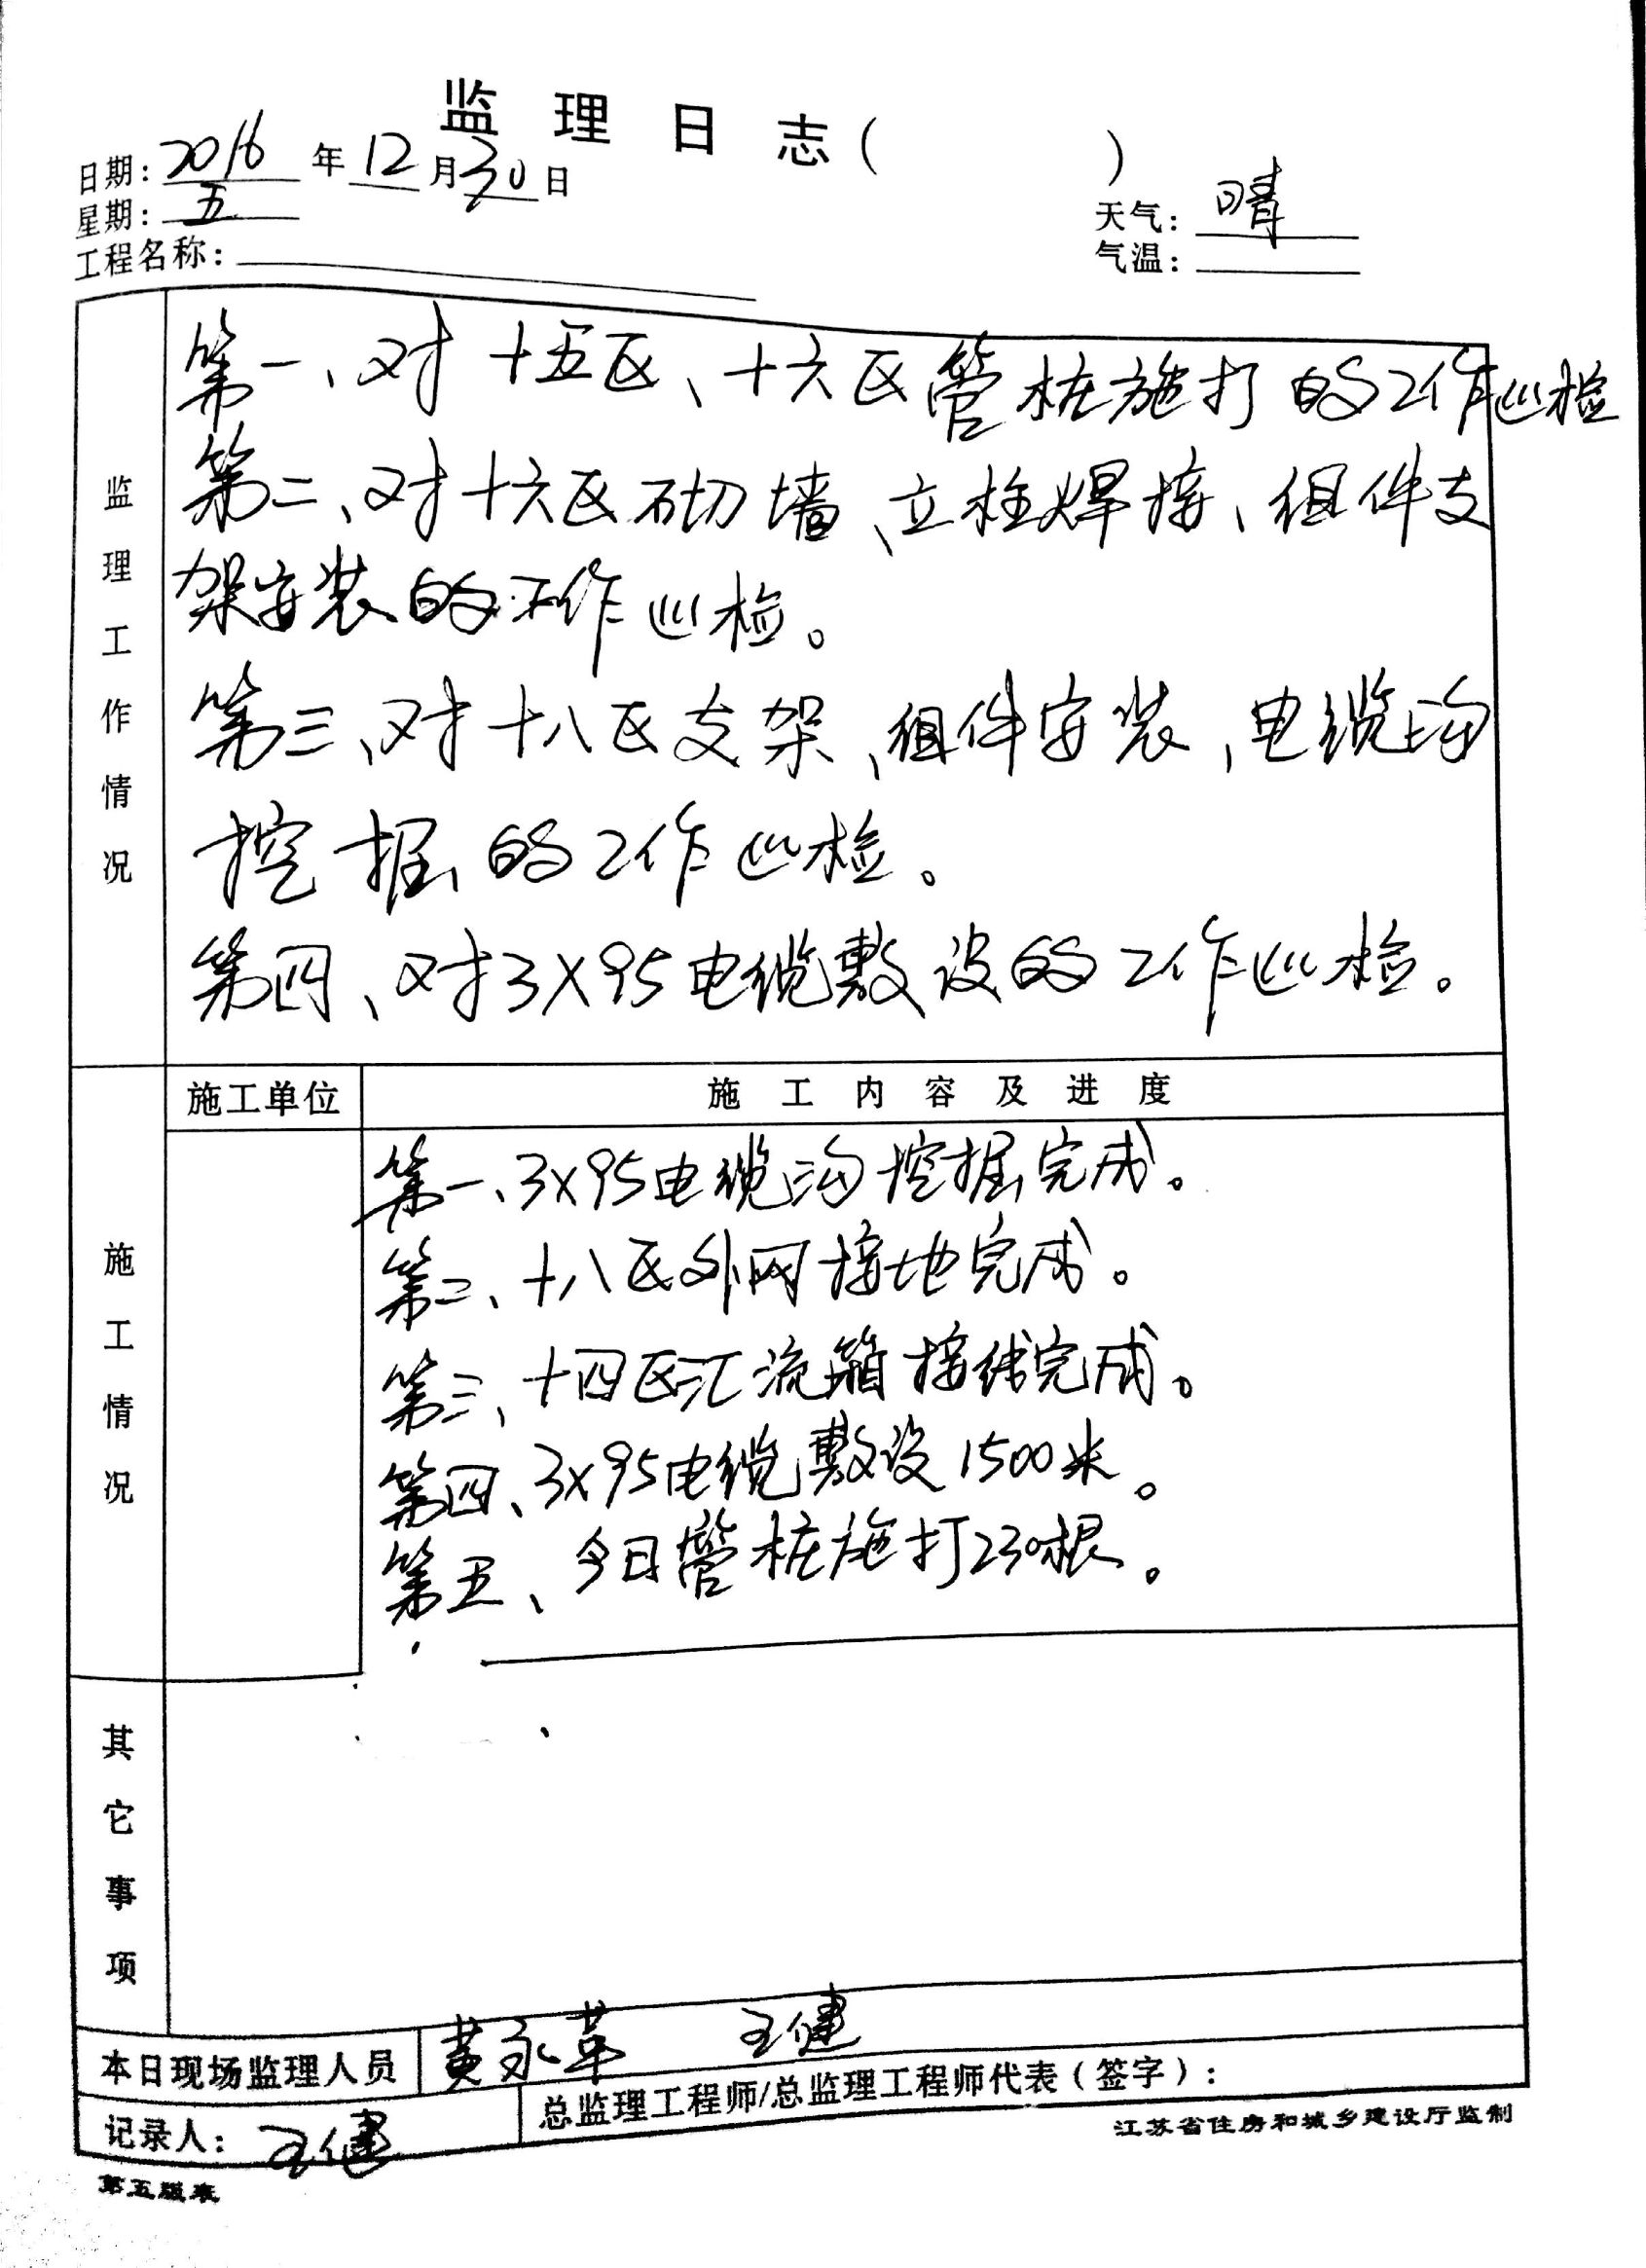 监理日志（ ）
日期：2016年12月30日
星期：五
天气：晴
工程名称：
气温：
监理工作情况
第一、对十五区、十六区管桩施打的工作巡检
第二、对十六区砌墙、立柱焊接、组件支
架安装的工作巡检。
第三、对十八区支架、组件安装、电缆沟
挖掘的工作巡检。
第四、对3×95电缆敷设的工作巡检。
施工情况
施工单位 施工内容及进度
第一、3×95电缆沟挖掘完成。
第二、十八区外网接地完成。
第三、十四区汇流箱接线完成。
第四、3×95电缆敷设1500米。
第五、今日管桩施打230根。
其它事项
本日现场监理人员 黄永革 王健
记录人：王健 总监理工程师/总监理工程师代表（签字）：
江苏省住房和城乡建设厅监制
第五版表